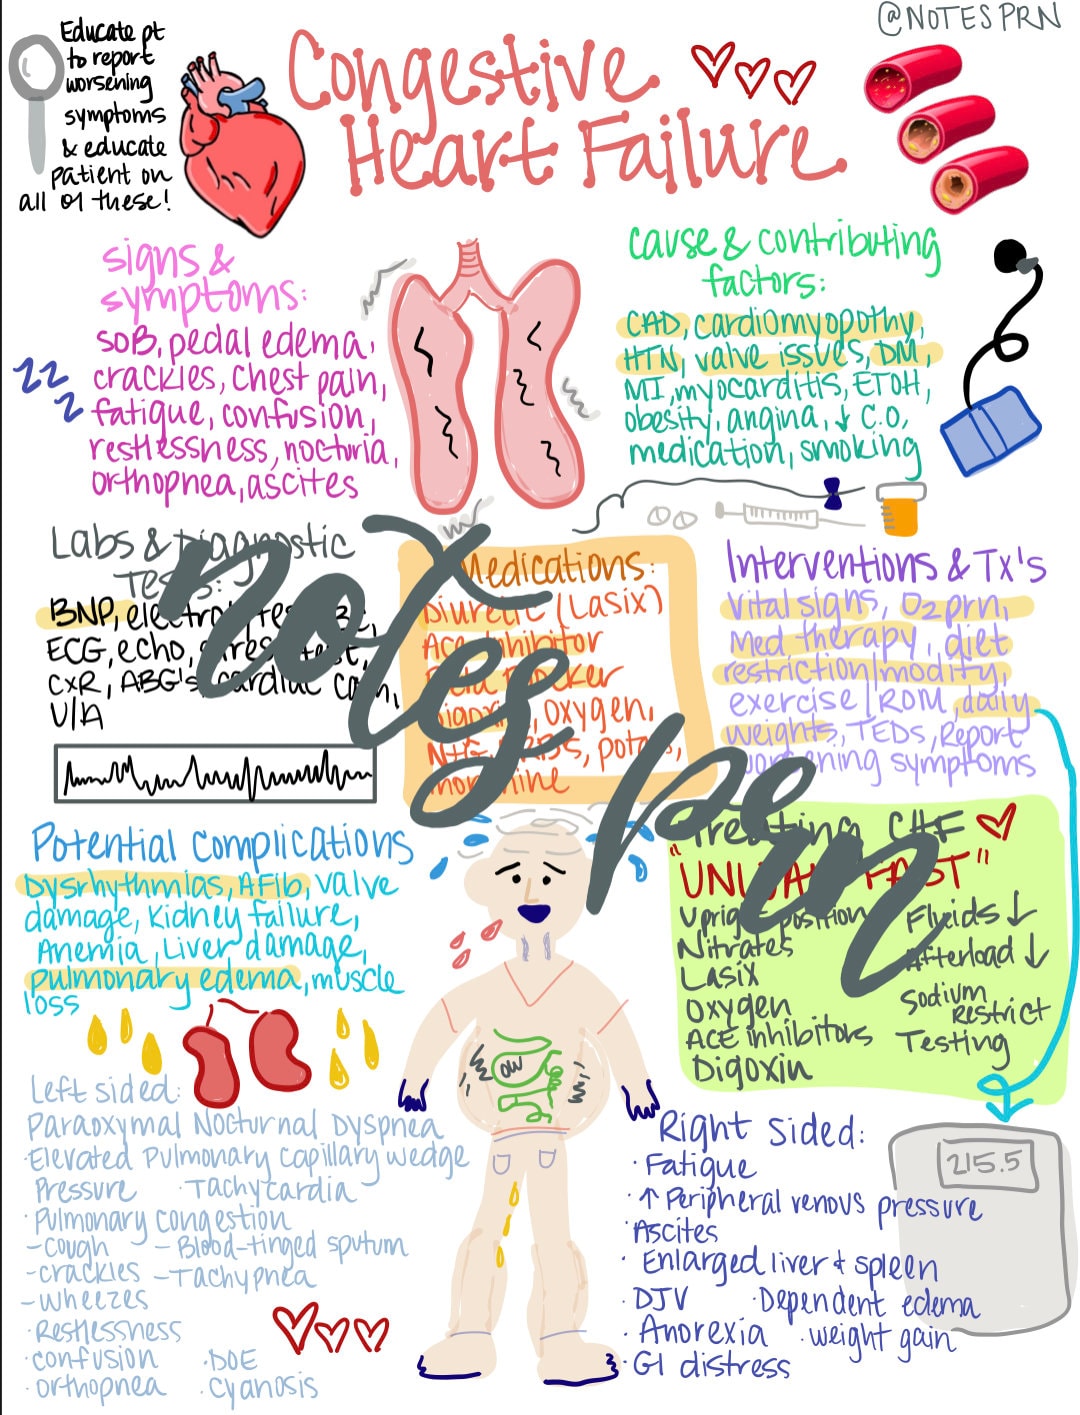 @NOTESPRN
Educate pt
to report
worsening
symptoms
& educate
patient on
all of these!
Congestive
Heart Failure
signs &
symptoms:
SOB, pedal edema,
crackles, chest pain,
fatigue, confusion,
restlessness, nocturia,
orthopnea, ascites
zz
z
cause & contributing
factors:
CAD, cardiomyopothy,
HTN, valve issues, DM,
MI, myocarditis, ETOH,
obesity, angina, ↓ C.O,
medication, smoking
Labs & Diagnostic
Tests:
BNP, electrolytes,
ECG, echo, stress test,
CXR, ABG's, cardiac cath,
U/A
Medications:
Diuretic (Lasix)
Ace Inhibitor
Beta Blocker
Digoxin, Oxygen,
NTG, ARBs,
morphine
Interventions & Tx's
Vital signs, O2 prn,
Med therapy, diet
restriction/modify,
exercise/ROM, daily
weights, TEDs, Report
worsening symptoms
notes prn
Potential Complications
Dysrhythmias, AFib, valve
damage, Kidney failure,
Anemia, Liver damage,
pulmonary edema, muscle
loss
Treating CHF
"UNLOAD FAST"
Upright position
Nitrates
Lasix
Oxygen
ACE inhibitors
Digoxin
Fluids ↓
Afterload ↓
Sodium
Restrict
Testing
ow
Left sided:
Paraoxymal Nocturnal Dyspnea
·Elevated Pulmonary capillary wedge
Pressure ·Tachycardia
·Pulmonary congestion
-cough -Blood-tinged sputum
-crackles -Tachypnea
-wheezes
·Restlessness
·confusion ·DOE
·orthopnea ·cyanosis
Right sided:
·Fatigue
·↑ Peripheral venous pressure
·Ascites
·Enlarged liver & spleen
·DJV ·Dependent edema
·Anorexia ·weight gain
·GI distress
215.5